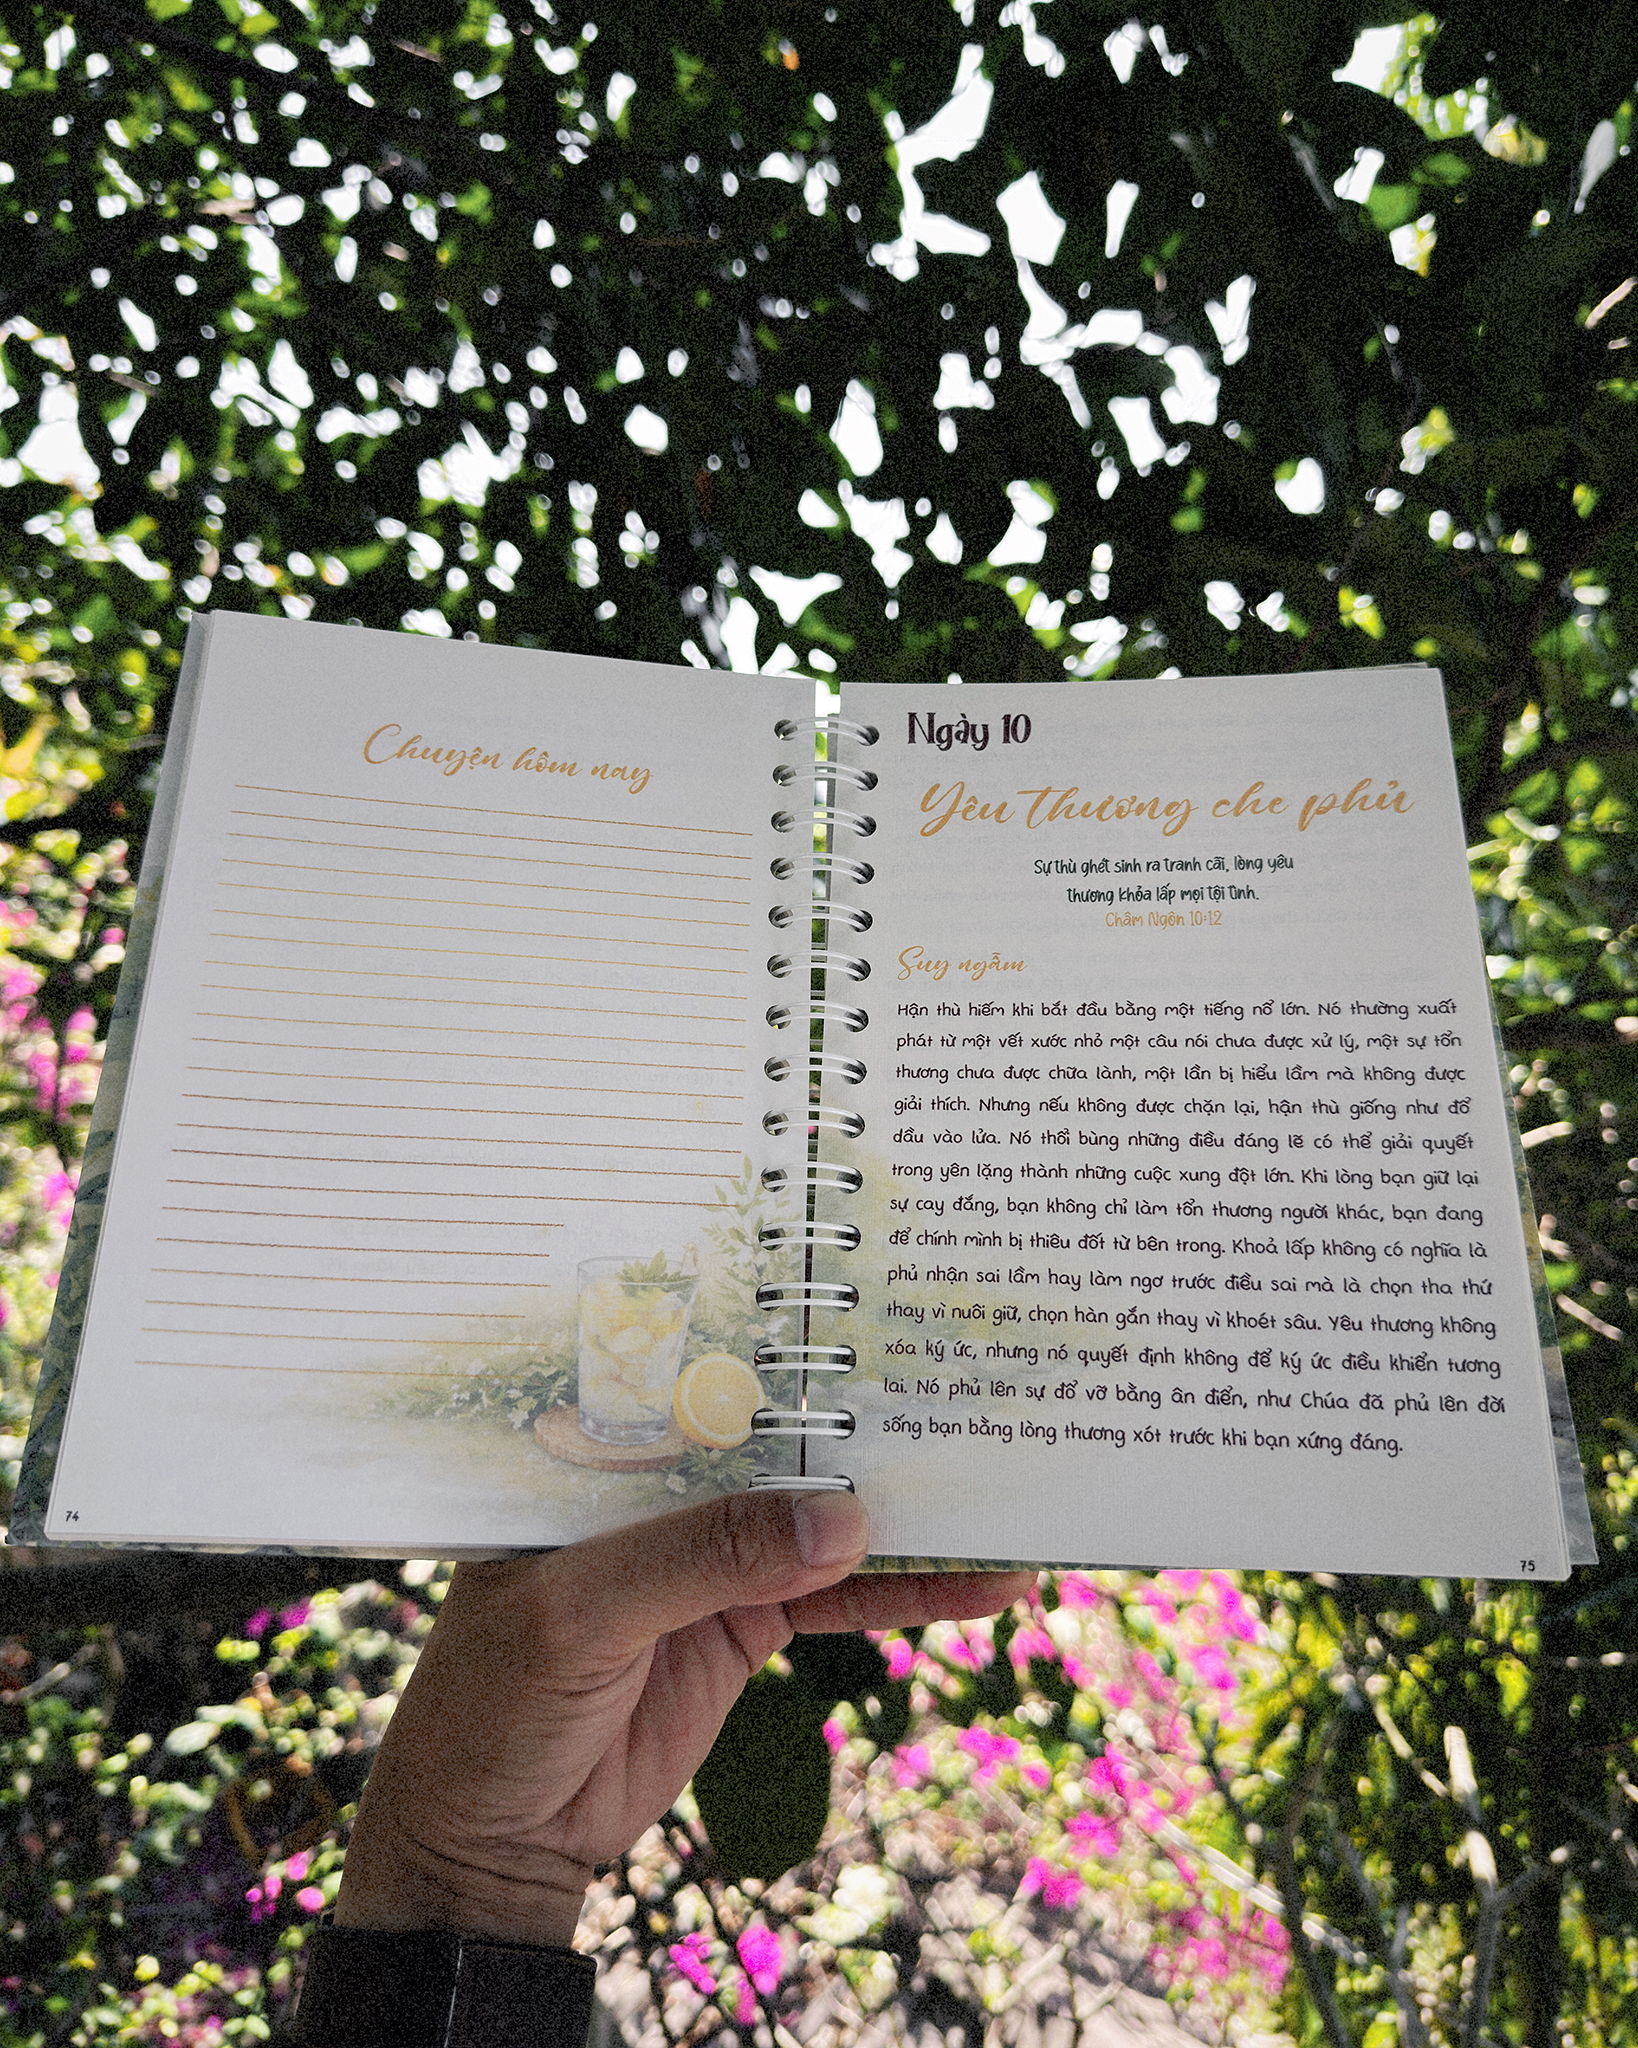 Chuyện hôm nay
74
Ngày 10
Yêu thương che phủ
Sự thù ghét sinh ra tranh cãi, lòng yêu
thương khỏa lấp mọi tội tình.
Châm Ngôn 10:12
Suy ngẫm
Hận thù hiếm khi bắt đầu bằng một tiếng nổ lớn. Nó thường xuất
phát từ một vết xước nhỏ một câu nói chưa được xử lý, một sự tổn
thương chưa được chữa lành, một lần bị hiểu lầm mà không được
giải thích. Nhưng nếu không được chặn lại, hận thù giống như đổ
dầu vào lửa. Nó thổi bùng những điều đáng lẽ có thể giải quyết
trong yên lặng thành những cuộc xung đột lớn. Khi lòng bạn giữ lại
sự cay đắng, bạn không chỉ làm tổn thương người khác, bạn đang
để chính mình bị thiêu đốt từ bên trong. Khoả lấp không có nghĩa là
phủ nhận sai lầm hay làm ngơ trước điều sai mà là chọn tha thứ
thay vì nuôi giữ, chọn hàn gắn thay vì khoét sâu. Yêu thương không
xóa ký ức, nhưng nó quyết định không để ký ức điều khiển tương
lai. Nó phủ lên sự đổ vỡ bằng ân điển, như Chúa đã phủ lên đời
sống bạn bằng lòng thương xót trước khi bạn xứng đáng.
75